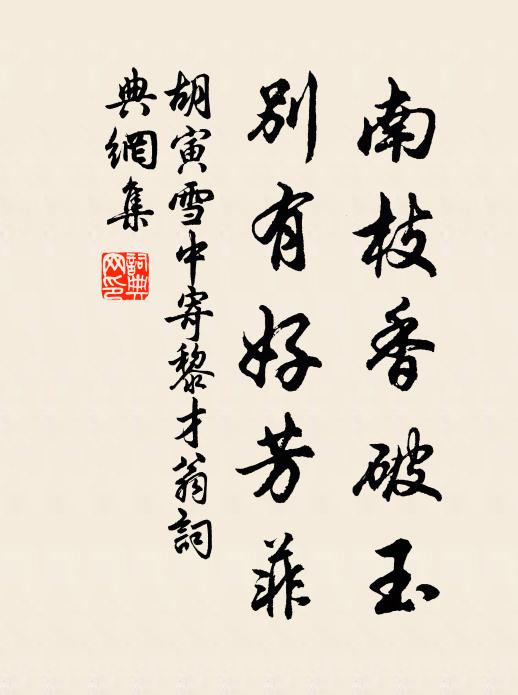 南枝香破玉
別有好芳菲
胡寅雪中寄黎才翁詞
典網集
詞典網印